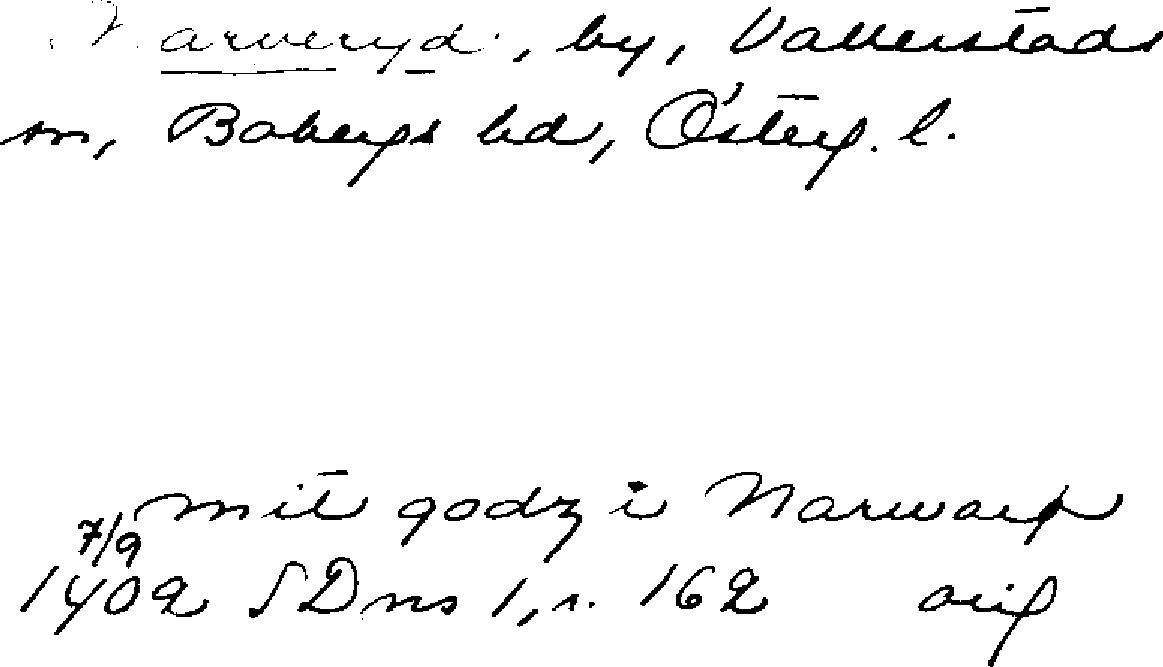 Narveryd, by, Vallerstads
sn, Bobergs hd, Österg. l.
mit godz i Narwarp
7/9
1402 SDns 1, s. 162 orig